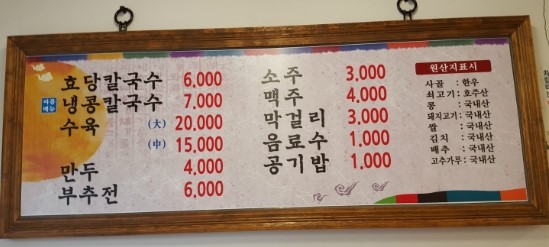 효당칼국수 6,000
여름메뉴 냉콩칼국수 7,000
수육 (大) 20,000
(中) 15,000
만두 4,000
부추전 6,000
소주 3,000
맥주 4,000
막걸리 3,000
음료수 1,000
공기밥 1,000
원산지표시
사골 : 한우
쇠고기 : 호주산
콩 : 국내산
돼지고기 : 국내산
쌀 : 국내산
김치 : 국내산
배추 : 국내산
고추가루 : 국내산